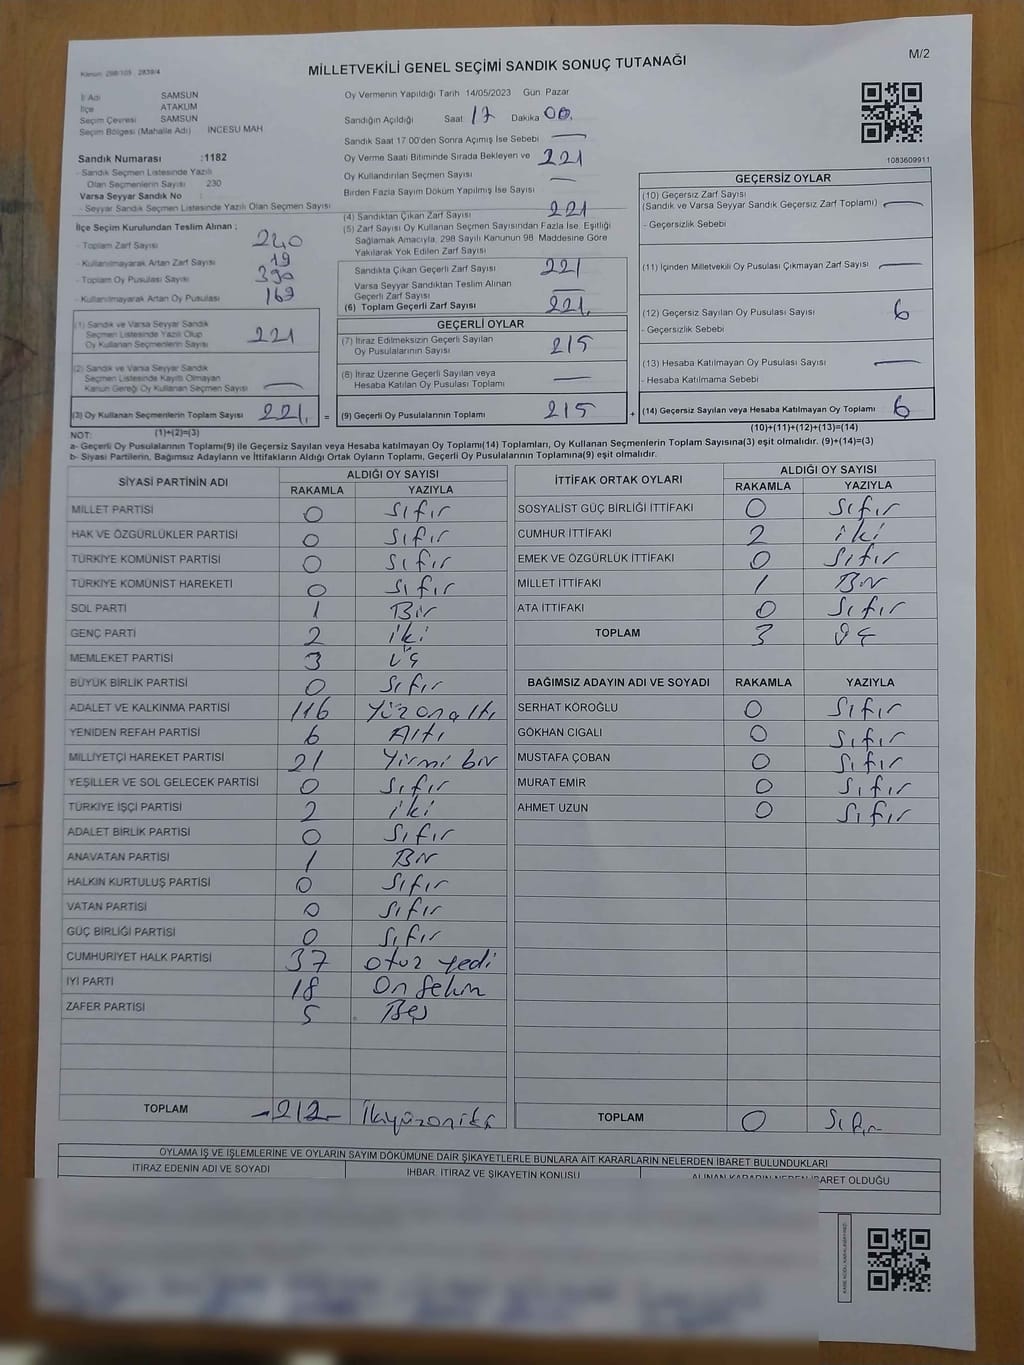 Kanun: 298/105 2839/4
MİLLETVEKİLİ GENEL SEÇİMİ SANDIK SONUÇ TUTANAĞI
M/2
İl Adı SAMSUN
İlçe ATAKUM
Seçim Çevresi SAMSUN
Seçim Bölgesi (Mahalle Adı) INCESU MAH
Sandık Numarası :1182
- Sandık Seçmen Listesinde Yazılı
Olan Seçmenlerin Sayısı 230
Varsa Seyyar Sandık No
- Seyyar Sandık Seçmen Listesinde Yazılı Olan Seçmen Sayısı
İlçe Seçim Kurulundan Teslim Alınan ;
- Toplam Zarf Sayısı 240
- Kullanılmayarak Artan Zarf Sayısı 19
- Toplam Oy Pusulası Sayısı 390
- Kullanılmayarak Artan Oy Pusulası 169
(1) Sandık ve Varsa Seyyar Sandık
Seçmen Listesinde Yazılı Olup
Oy Kullanan Seçmenlerin Sayısı 221
(2) Sandık ve Varsa Seyyar Sandık
Seçmen Listesinde Kayıtlı Olmayan
Kanun Gereği Oy Kullanan Seçmen Sayısı —
(3) Oy Kullanan Seçmenlerin Toplam Sayısı 221.
(1)+(2)=(3)
Oy Vermenin Yapıldığı Tarih 14/05/2023 Gün: Pazar
Sandığın Açıldığı Saat 17 Dakika 00.
Sandık Saat 17:00'den Sonra Açımış İse Sebebi —
Oy Verme Saati Bitiminde Sırada Bekleyen ve 221
Oy Kullandırılan Seçmen Sayısı —
Birden Fazla Sayım Döküm Yapılmış İse Sayısı
(4) Sandıktan Çıkan Zarf Sayısı 221
(5) Zarf Sayısı Oy Kullanan Seçmen Sayısından Fazla İse, Eşitliği
Sağlamak Amacıyla, 298 Sayılı Kanunun 98. Maddesine Göre
Yakılarak Yok Edilen Zarf Sayısı
Sandıkta Çıkan Geçerli Zarf Sayısı 221
Varsa Seyyar Sandıktan Teslim Alınan
Geçerli Zarf Sayısı —
(6) Toplam Geçerli Zarf Sayısı 221.
GEÇERLİ OYLAR
(7) İtiraz Edilmeksizin Geçerli Sayılan
Oy Pusulalarının Sayısı 215
(8) İtiraz Üzerine Geçerli Sayılan veya
Hesaba Katılan Oy Pusulası Toplamı —
= (9) Geçerli Oy Pusulalarının Toplamı 215
1083609911
GEÇERSİZ OYLAR
(10) Geçersiz Zarf Sayısı
(Sandık ve Varsa Seyyar Sandık Geçersiz Zarf Toplamı) —
- Geçersizlik Sebebi
(11) İçinden Milletvekili Oy Pusulası Çıkmayan Zarf Sayısı —
(12) Geçersiz Sayılan Oy Pusulası Sayısı 6
- Geçersizlik Sebebi
(13) Hesaba Katılmayan Oy Pusulası Sayısı —
- Hesaba Katılmama Sebebi
+ (14) Geçersiz Sayılan veya Hesaba Katılmayan Oy Toplamı 6
(10)+(11)+(12)+(13)=(14)
NOT:
a- Geçerli Oy Pusulalarının Toplamı(9) ile Geçersiz Sayılan veya Hesaba katılmayan Oy Toplamı(14) Toplamları, Oy Kullanan Seçmenlerin Toplam Sayısına(3) eşit olmalıdır. (9)+(14)=(3)
b- Siyasi Partilerin, Bağımsız Adayların ve İttifakların Aldığı Ortak Oyların Toplamı, Geçerli Oy Pusulalarının Toplamına(9) eşit olmalıdır.
SİYASİ PARTİNİN ADI ALDIĞI OY SAYISI
RAKAMLA YAZIYLA
MİLLET PARTİSİ 0 Sıfır
HAK VE ÖZGÜRLÜKLER PARTİSİ 0 Sıfır
TÜRKİYE KOMÜNİST PARTİSİ 0 Sıfır
TÜRKİYE KOMÜNİST HAREKETİ 0 Sıfır
SOL PARTİ 1 Bir
GENÇ PARTİ 2 iki
MEMLEKET PARTİSİ 3 Üç
BÜYÜK BİRLİK PARTİSİ 0 Sıfır
ADALET VE KALKINMA PARTİSİ 116 Yüzonaltı
YENİDEN REFAH PARTİSİ 6 Altı
MİLLİYETÇİ HAREKET PARTİSİ 21 Yirmi bir
YEŞİLLER VE SOL GELECEK PARTİSİ 0 Sıfır
TÜRKİYE İŞÇİ PARTİSİ 2 iki
ADALET BİRLİK PARTİSİ 0 Sıfır
ANAVATAN PARTİSİ 1 Bir
HALKIN KURTULUŞ PARTİSİ 0 Sıfır
VATAN PARTİSİ 0 Sıfır
GÜÇ BİRLİĞİ PARTİSİ 0 Sıfır
CUMHURİYET HALK PARTİSİ 37 otuz yedi
İYİ PARTİ 18 On Sekiz
ZAFER PARTİSİ 5 Beş
TOPLAM -212- İkiyüzoniki
İTTİFAK ORTAK OYLARI ALDIĞI OY SAYISI
RAKAMLA YAZIYLA
SOSYALİST GÜÇ BİRLİĞİ İTTİFAKI 0 Sıfır
CUMHUR İTTİFAKI 2 iki
EMEK VE ÖZGÜRLÜK İTTİFAKI 0 Sıfır
MİLLET İTTİFAKI 1 Bir
ATA İTTİFAKI 0 Sıfır
TOPLAM 3 Üç
BAĞIMSIZ ADAYIN ADI VE SOYADI RAKAMLA YAZIYLA
SERHAT KÖROĞLU 0 Sıfır
GÖKHAN CIGALI 0 Sıfır
MUSTAFA ÇOBAN 0 Sıfır
MURAT EMİR 0 Sıfır
AHMET UZUN 0 Sıfır
TOPLAM 0 Sıfır
OYLAMA İŞ VE İŞLEMLERİNE VE OYLARIN SAYIM DÖKÜMÜNE DAİR ŞİKAYETLERLE BUNLARA AİT KARARLARIN NELERDEN İBARET BULUNDUKLARI
İTİRAZ EDENİN ADI VE SOYADI İHBAR, İTİRAZ VE ŞİKAYETİN KONUSU ALINAN KARARIN NEDEN İBARET OLDUĞU